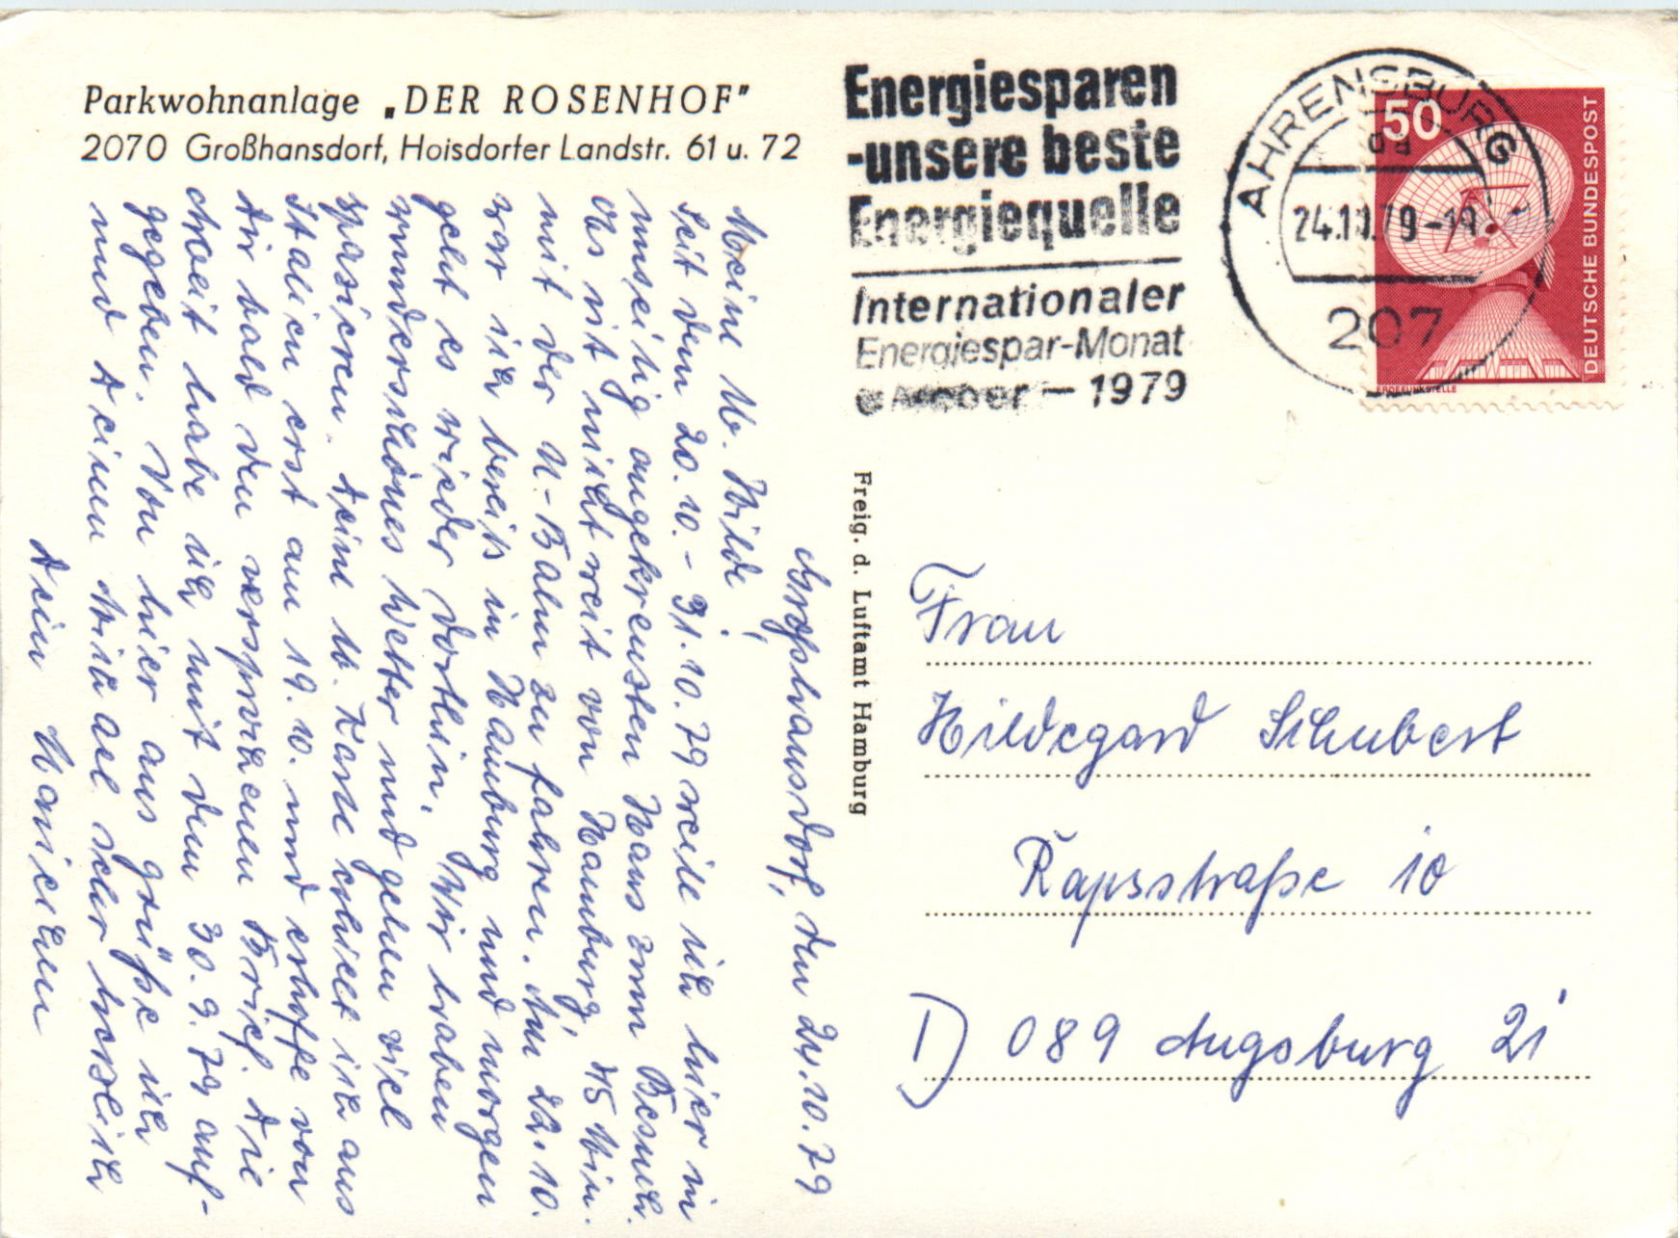 Parkwohnanlage „DER ROSENHOF"
2070 Großhansdorf, Hoisdorfer Landstr. 61 u. 72
Energiesparen
-unsere beste
Energiequelle
Internationaler
Energiespar-Monat
1979
AHRENSBURG
24.10.79-19
207
50
DEUTSCHE BUNDESPOST
ERDEFUNKSTELLE
Freig. d. Luftamt Hamburg
Großhansdorf, den 24.10.79
Meine lb. Hilde!
Seit dem 20.10.-31.10.79 weile ich hier im
umseitig angekreuzten Haus zum Besuch.
Es ist nicht weit von Hamburg, 45 Min.
mit der U-Bahn zu fahren. Am 22.10.
war ich bereits in Hamburg und morgen
geht es wieder dorthin. Wir haben
wunderschönes Wetter und gehen viel
spazieren. Deine lb. Karte erhielt ich aus
Italien erst am 19.10. und erhoffe von
Dir bald den versprochenen Brief. Die
Arbeit habe ich mit dem 30.9.79 auf-
gegeben. Von hier aus grüße ich
und Deinen Michael sehr herzlich
Dein Hanichen
Frau
Hildegard Schubert
Rapsstraße 10
D) 089 Augsburg 21